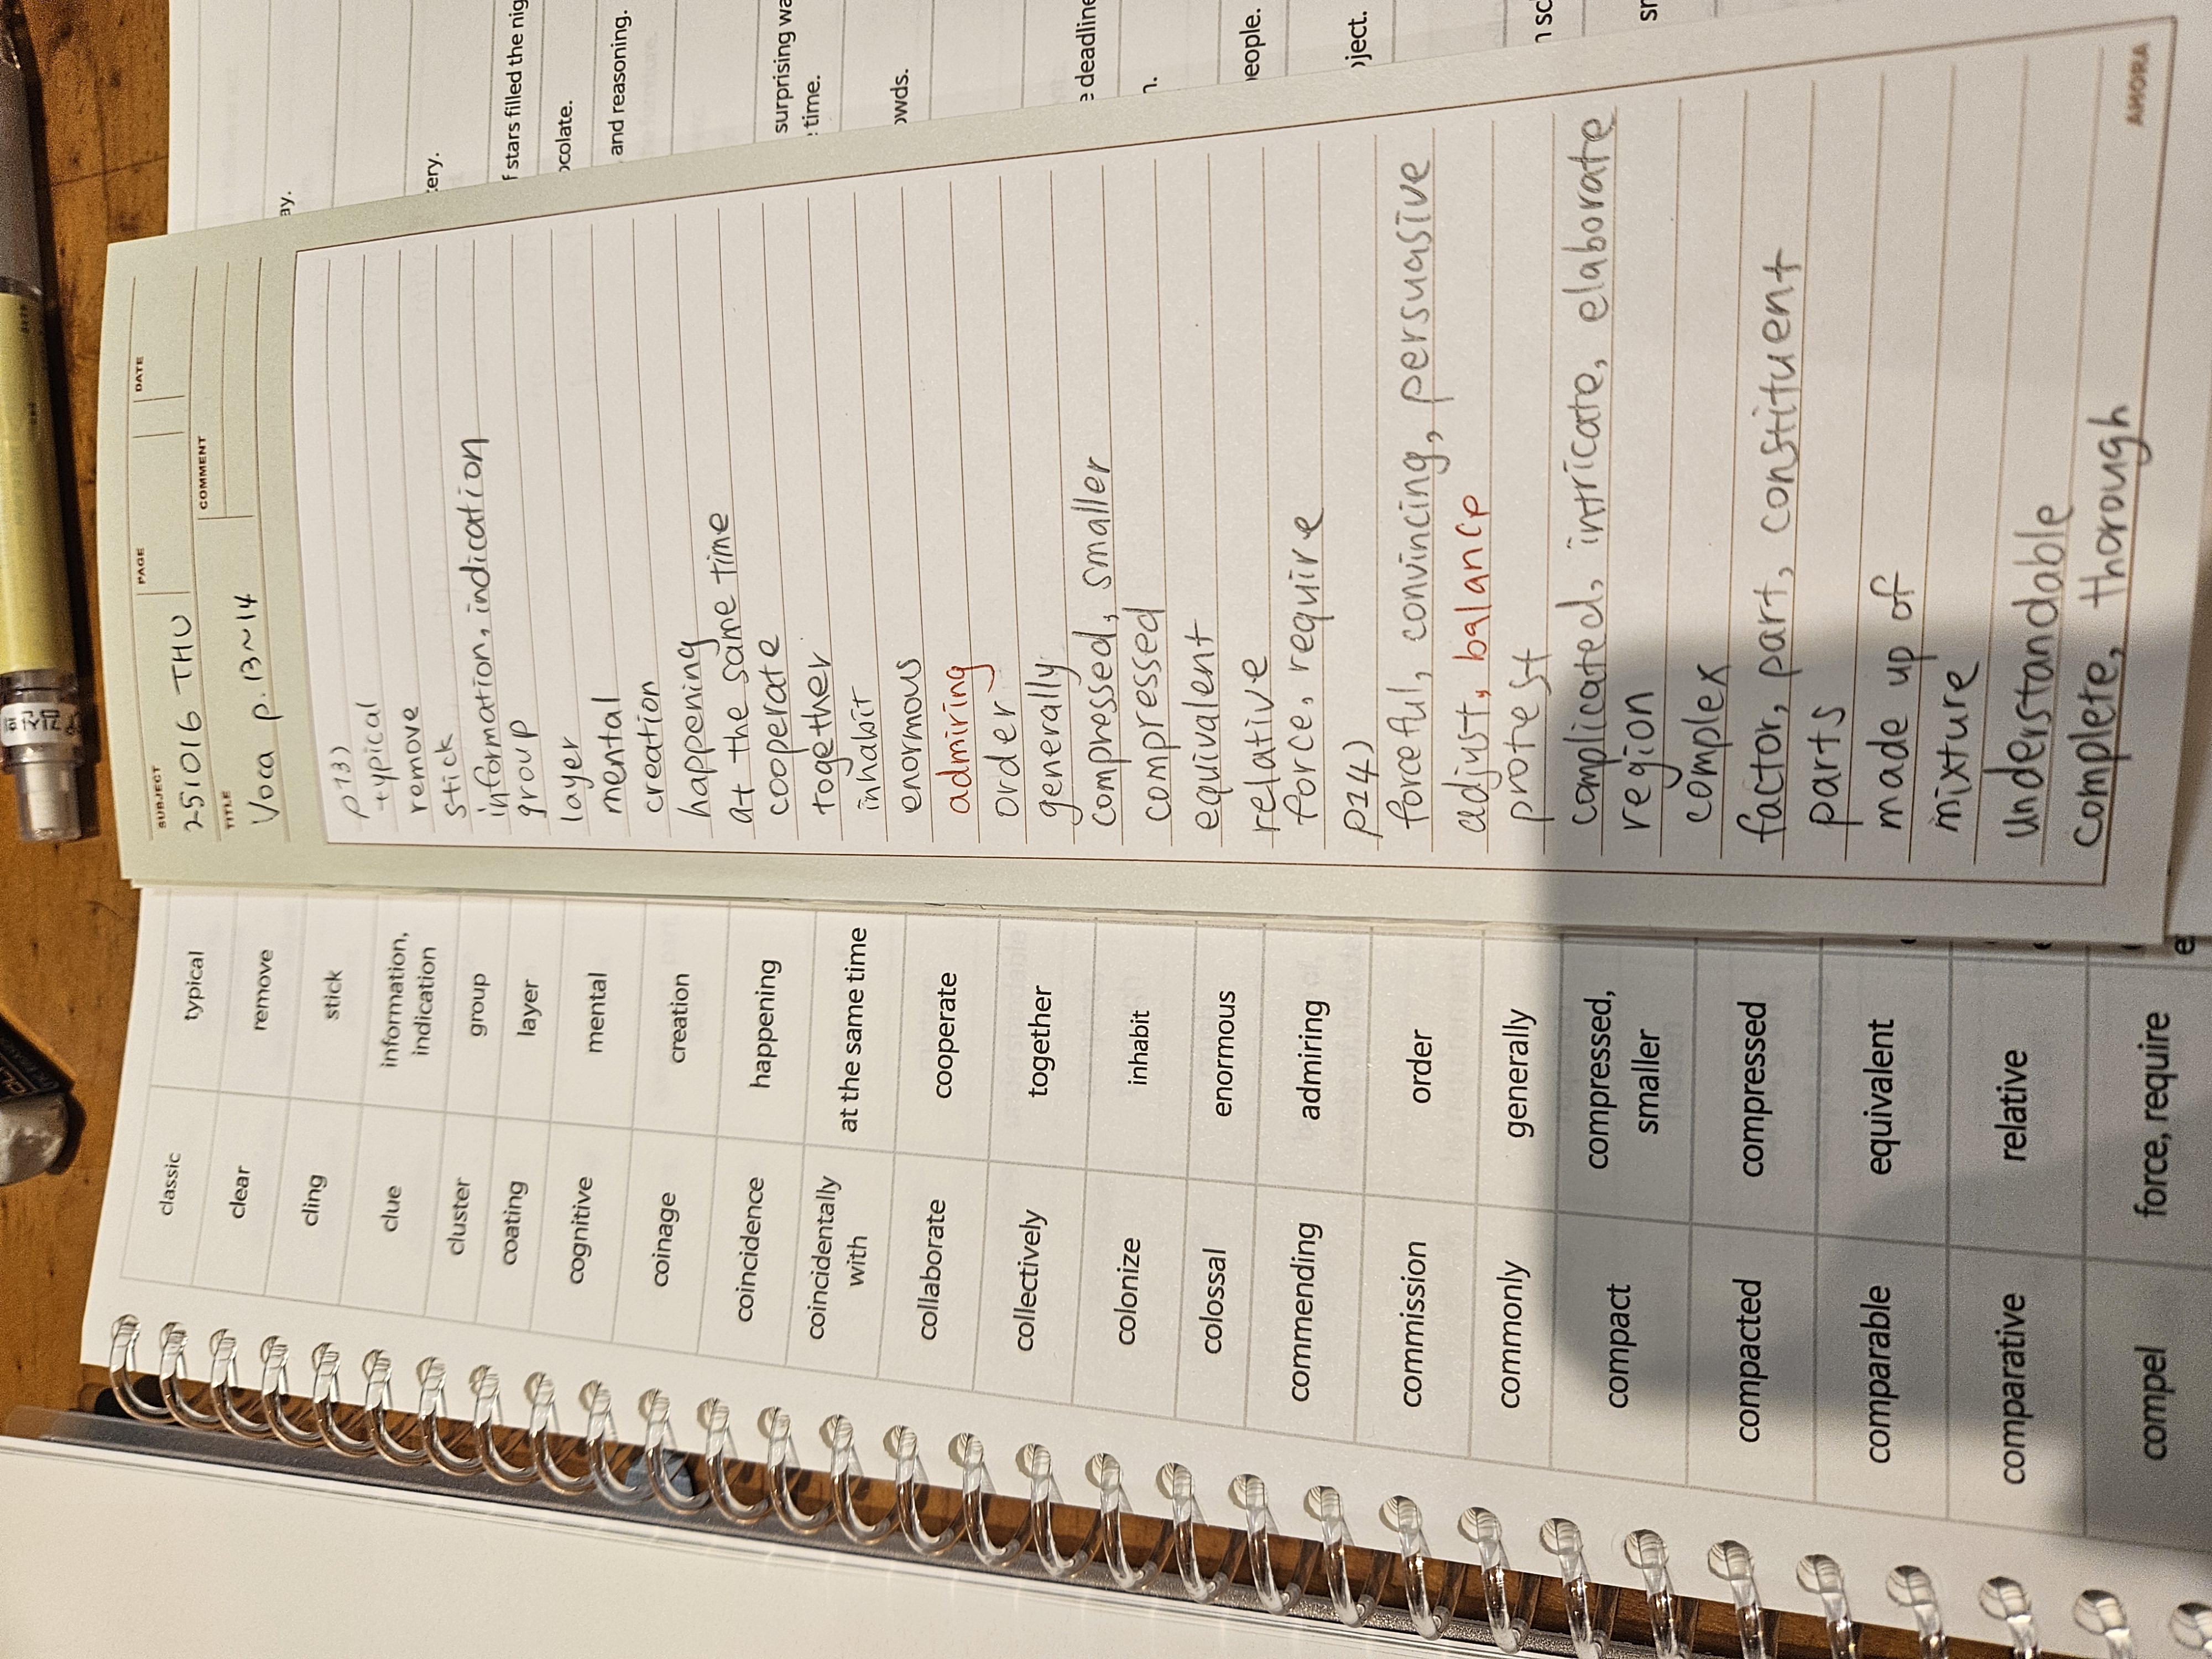 f stars filled the nig
ocolate.
and reasoning.
surprising wa
time.
owds.
e deadline
n.
people.
oject.
n sc
ery.
ay.
SUBJECT
PAGE
DATE
251016 THU
TITLE
COMMENT
Voca p.13~14
p13)
typical
remove
stick
information, indication
group
layer
mental
creation
happening
at the same time
cooperate
together
inhabit
enormous
admiring
order
generally
compressed, smaller
compressed
equivalent
relative
force, require
p14)
forceful, convincing, persuasive
adjust, balance
protest
complicated, intricate, elaborate
region
complex
factor, part, constituent
parts
made up of
mixture
understandable
complete, thorough
AHORA
classic typical
clear remove
cling stick
clue information,
indication
cluster group
coating layer
cognitive mental
coinage creation
coincidence happening
coincidentally
with at the same time
collaborate cooperate
collectively together
colonize inhabit
colossal enormous
commending admiring
commission order
commonly generally
compact compressed,
smaller
compacted compressed
comparable equivalent
comparative relative
compel force, require